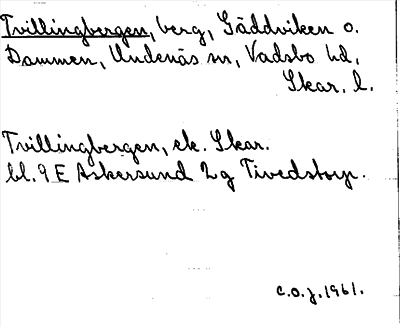 Tvillingbergen, berg, Gäddviken o.
Dammen, Undenäs sn, Vadsbo hd,
Skar. l.
Tvillingbergen, ek. Skar.
bl. 9 E Askersund 2g Tivedstorp.
c.o.j. 1961.